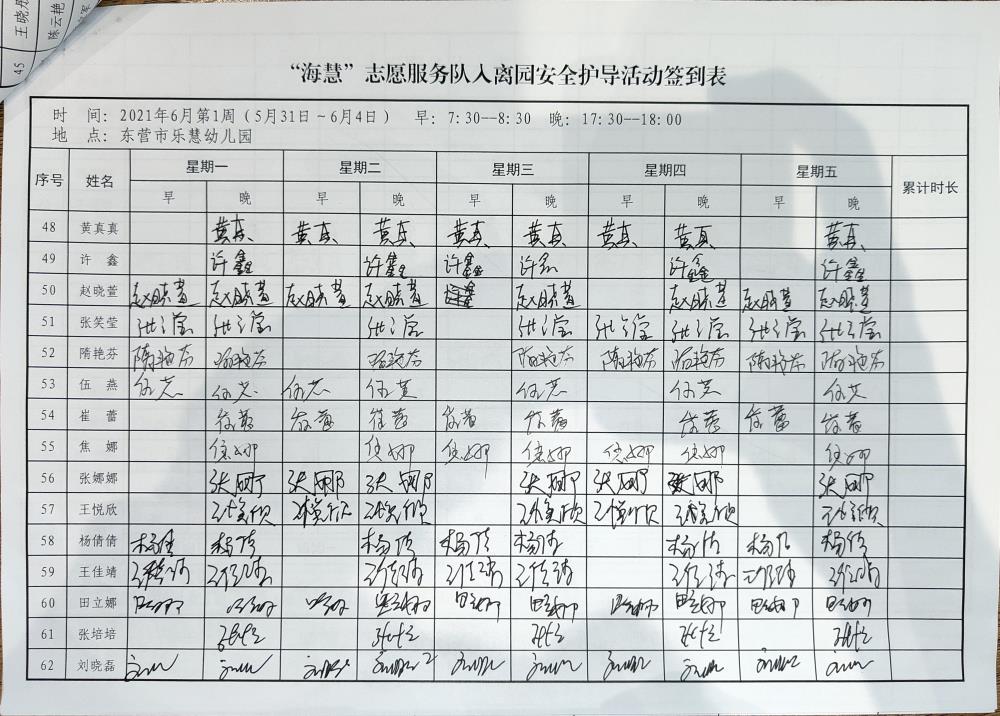 45 王晓彤
陈云艳
“海慧”志愿服务队入离园安全护导活动签到表
时 间: 2021年6月第1周（5月31日～6月4日） 早: 7:30--8:30 晚: 17:30--18:00
地 点: 东营市乐慧幼儿园
序号 姓名 星期一 星期二 星期三 星期四 星期五 累计时长
早 晚 早 晚 早 晚 早 晚 早 晚
48 黄真真 黄真 黄真 黄真 黄真 黄真 黄真 黄真 黄真
49 许鑫 许鑫 许鑫 许鑫 许鑫 许鑫 许鑫
50 赵晓萱 赵晓萱 赵晓萱 赵晓萱 赵晓萱 赵晓萱 赵晓萱 赵晓萱 赵晓萱
51 张笑莹 张笑莹 张笑莹 张笑莹 张笑莹 张笑莹 张笑莹 张笑莹 张笑莹
52 隋艳芬 隋艳芬 隋艳芬 隋艳芬 隋艳芬 隋艳芬 隋艳芬 隋艳芬 隋艳芬
53 伍燕 伍燕 伍燕 伍燕 伍燕 伍燕 伍燕 伍燕
54 崔蕾 崔蕾 崔蕾 崔蕾 崔蕾 崔蕾 崔蕾 崔蕾 崔蕾
55 焦娜 焦娜 焦娜 焦娜 焦娜 焦娜 焦娜 焦娜
56 张娜娜 张娜 张娜 张娜 张娜 张娜 张娜 张娜
57 王悦欣 王悦欣 王悦欣 王悦欣 王悦欣 王悦欣 王悦欣 王悦欣
58 杨倩倩 杨倩 杨倩 杨倩 杨倩 杨倩 杨倩 杨倩 杨倩
59 王佳靖 王佳靖 王佳靖 王佳靖 王佳靖 王佳靖 王佳靖 王佳靖 王佳靖
60 田立娜 田立娜 田立娜 田立娜 田立娜 田立娜 田立娜 田立娜 田立娜 田立娜 田立娜
61 张培培 张培培 张培培 张培培 张培培 张培培
62 刘晓磊